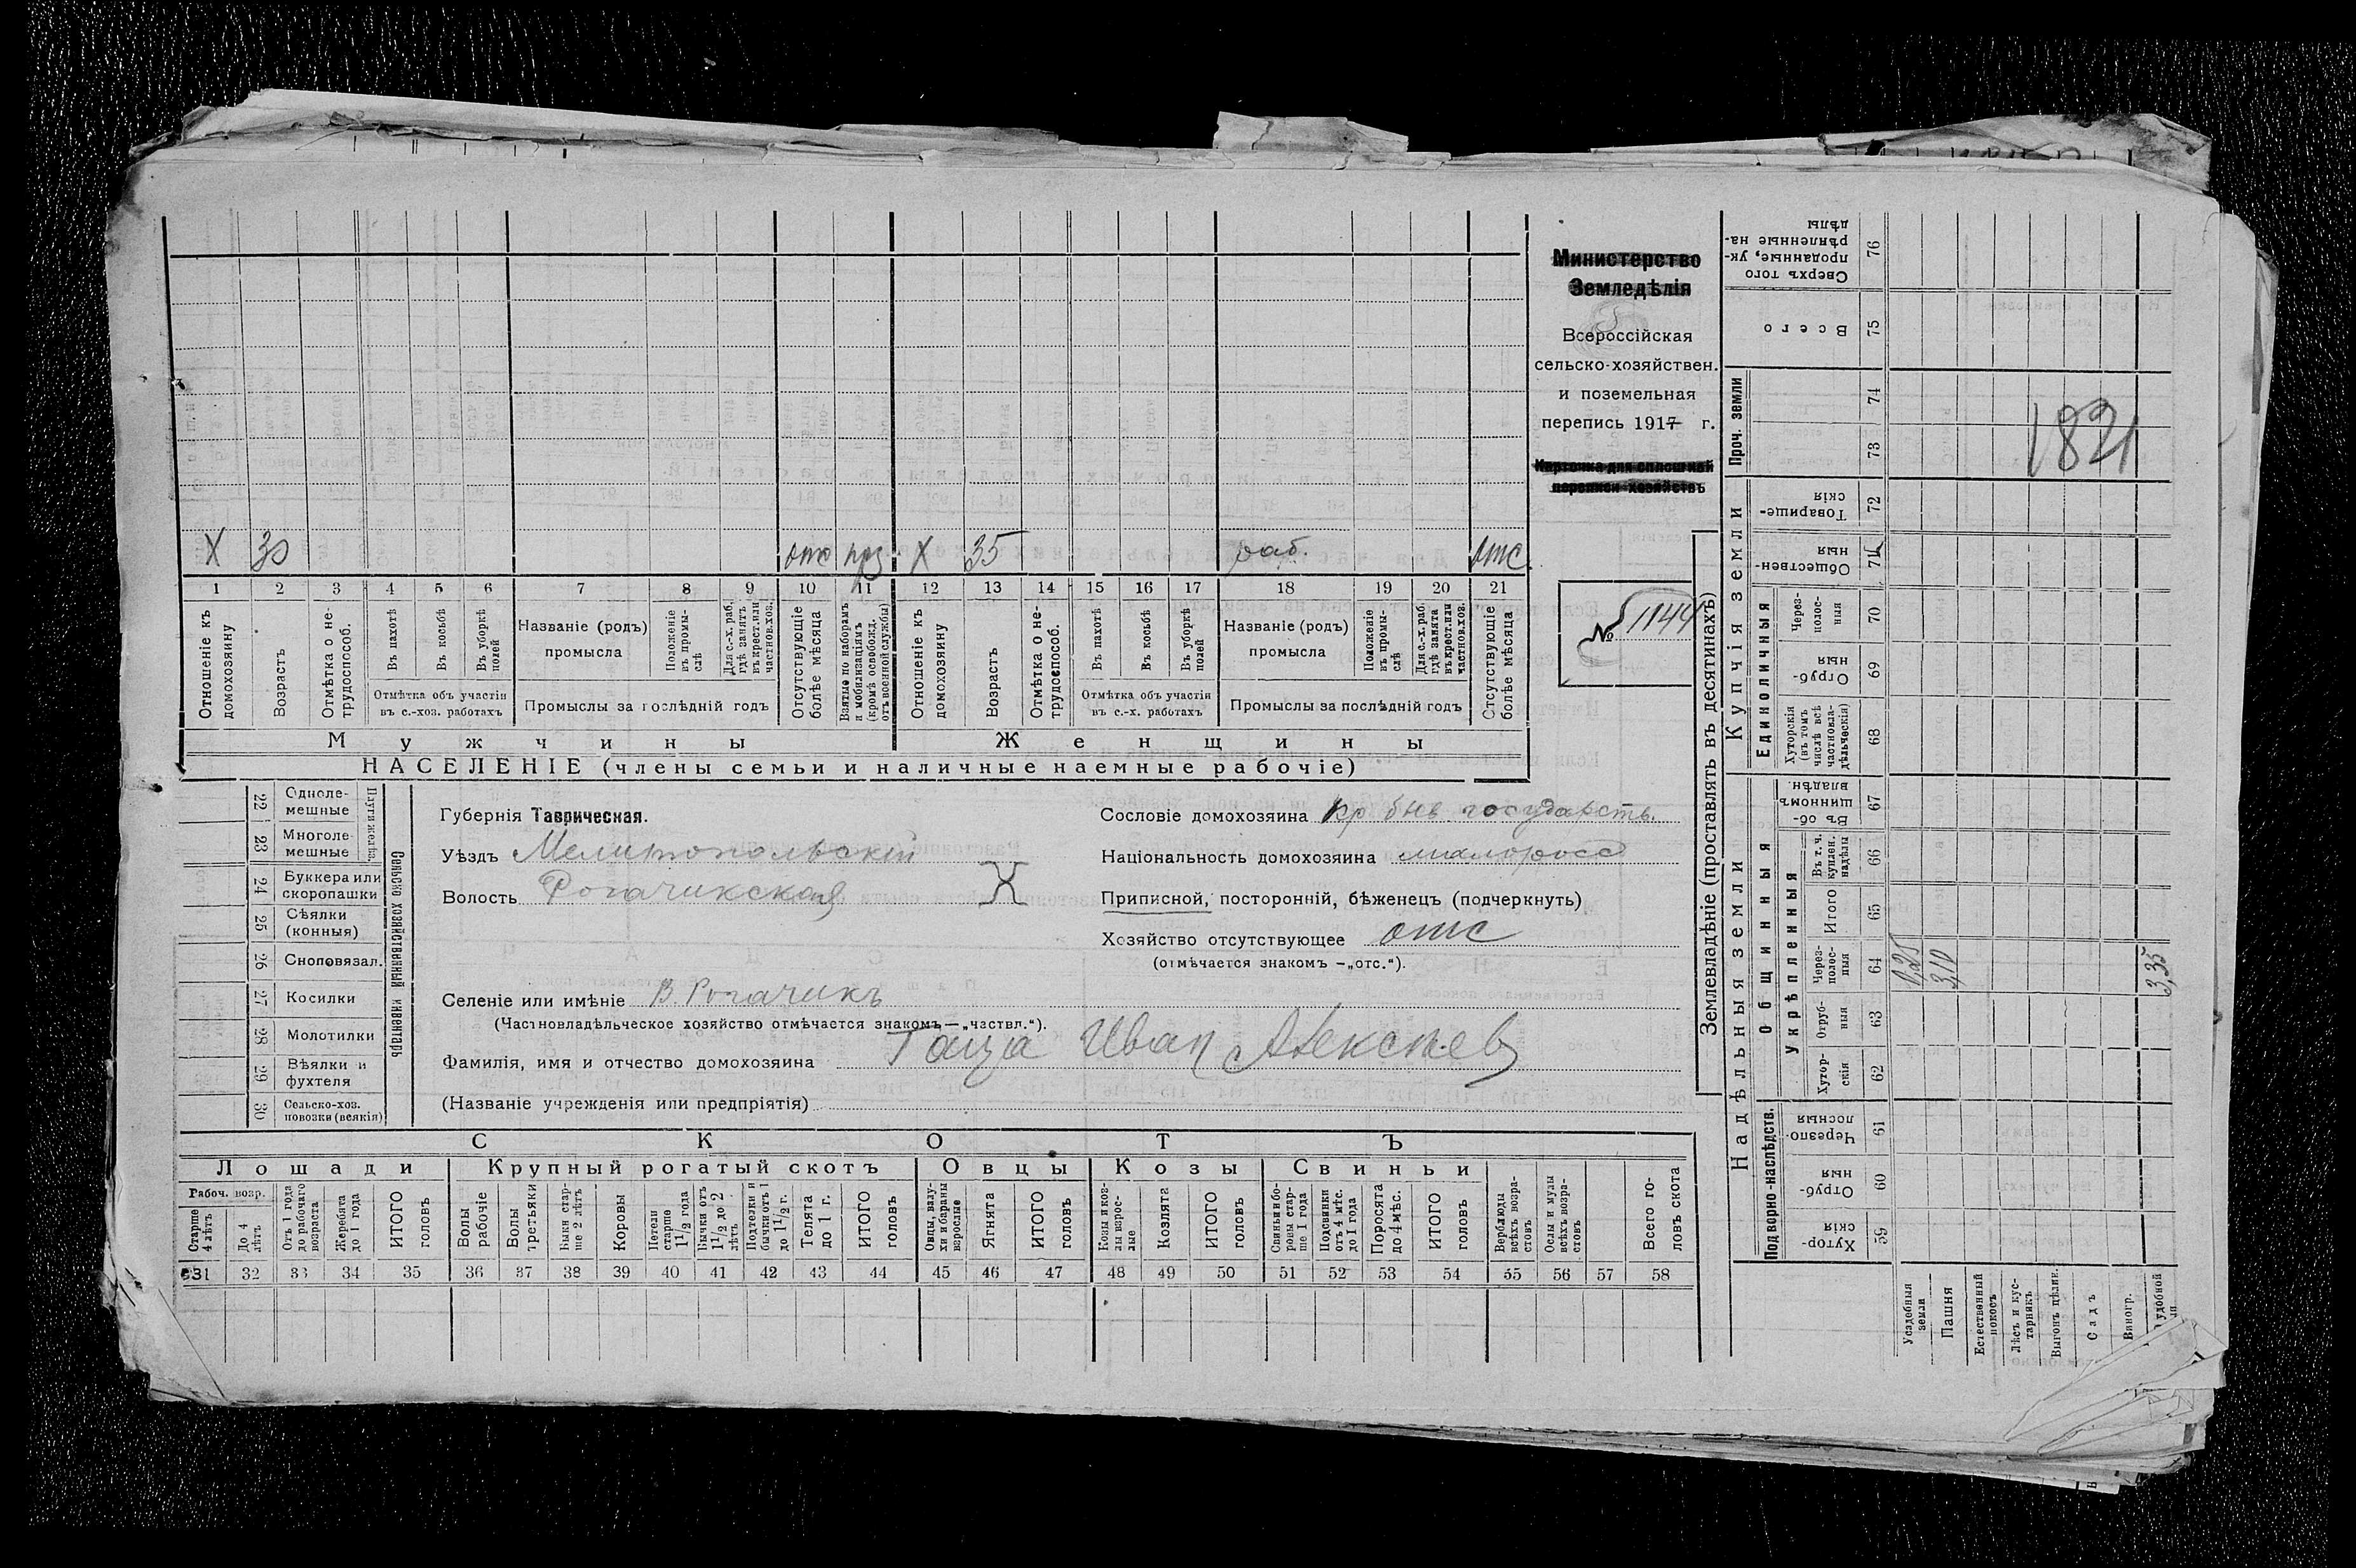 Министерство
Земледѣлія
Всероссійская
сельско-хозяйствен.
и поземельная
перепись 1917 г.
Карточка для сплошной
переписи хозяйствъ
№ 1144
X 30 отс прз X 35 раб. отс
1 2 3 4 5 6 7 8 9 10 11 12 13 14 15 16 17 18 19 20 21
Отношеніе къ домохозяину
Возрастъ
Отмѣтка о не-трудоспособ.
Въ пахотѣ
Въ косьбѣ
Въ уборкѣ полей
Отмѣтка объ участіи въ с.-хоз. работахъ
Названіе (родъ) промысла
Положеніе въ промы-слѣ
Для с.-х. раб. гдѣ занятъ въ крест. или частнов. хоз.
Промыслы за послѣдній годъ
Отсутствующіе болѣе мѣсяца
Взятые по наборамъ и мобилизаціямъ (кромѣ освобожд. отъ военной службы)
Отношеніе къ домохозяину
Возрастъ
Отмѣтка о не-трудоспособ.
Въ пахотѣ
Въ косьбѣ
Въ уборкѣ полей
Отмѣтка объ участіи въ с.-х. работахъ
Названіе (родъ) промысла
Положеніе въ промы-слѣ
Для с.-х. раб. гдѣ занята въ крест. или частнов. хоз.
Промыслы за послѣдній годъ
Отсутствующіе болѣе мѣсяца
Мужчины Женщины
НАСЕЛЕНІЕ (члены семьи и наличные наемные рабочіе)
22 Одноле-мешные
23 Многоле-мешные
Плуги желѣз.
24 Буккера или скоропашки
25 Сѣялки (конныя)
26 Сноповязал.
27 Косилки
28 Молотилки
29 Вѣялки и фухтеля
30 Сельско-хоз. повозки (всякія)
Сельско хозяйственный инвентарь
Губернія Таврическая.
Уѣздъ Мелитопольскій
Волость Рогачикская X
Селеніе или имѣніе В. Рогачикъ
(Частновладѣльческое хозяйство отмѣчается знакомъ—„частвл.“).
Фамилія, имя и отчество домохозяина Гаща Иван Алексѣев
(Названіе учрежденія или предпріятія)
Сословіе домохозяина кр быв государств.
Національность домохозяина малоросс
Приписной, посторонній, бѣженецъ (подчеркнуть)
Хозяйство отсутствующее отс
(отмѣчается знакомъ —„отс.“).
СКОТЪ
Лошади Крупный рогатый скотъ Овцы Козы Свиньи
Рабоч. возр.
Старше 4 лѣтъ
До 4 лѣтъ
Отъ 1 года до рабочаго возраста
Жеребята до 1 года
ИТОГО головъ
Волы рабочіе
Волы третьяки
Быки стар-ше 2 лѣтъ
Коровы
Нетели старше 1 1/2 года
Бычки отъ 1 1/2 до 2 лѣтъ
Подтелки и бычки отъ 1 до 1 1/2 г.
Телята до 1 г.
ИТОГО головъ
Овцы, валу-хи и бараны взрослые
Ягнята
ИТОГО головъ
Козы и коз-лы взрос-лые
Козлята
ИТОГО головъ
Свиньи и бо-ровы стар-ше 1 года
Подсвинки отъ 4 мѣс. до 1 года
Поросята до 4 мѣс.
ИТОГО головъ
Верблюды всѣхъ возра-стовъ
Ослы и мулы всѣхъ возра-стовъ
Всего го-ловъ скота
31 32 33 34 35 36 37 38 39 40 41 42 43 44 45 46 47 48 49 50 51 52 53 54 55 56 57 58
Землевладѣніе (проставлять въ десятинахъ)
Надѣльныя земли Купчія земли Проч. земли
Подворно-наслѣдств.
Общинныя
Укрѣпленныя
Единоличныя
Хутор-скія 59
Отруб-ныя 60
Черезпо-лосныя 61
Хутор-скія 62
Отруб-ныя 63
Через-полос-ныя 64
Итого 65
Въ т. ч. куплен. надѣлы 66
Въ об-щинномъ владѣн. 67
Хуторскія (въ томъ числѣ всѣ частновла-дѣльческія) 68
Отруб-ныя 69
Через-полос-ныя 70
Обществен-ныя 71
Товарище-скія 72
73
74
Всего 75
Сверхъ того проданные, ук-рѣпленные на-дѣлы 76
Усадебныя земли 0,25
Пашня 3,10
Естественный покосъ
Лѣсъ и кус-тарникъ
Выгонъ цѣлин.
Садъ
Виногр.
удобной 3,35
1821